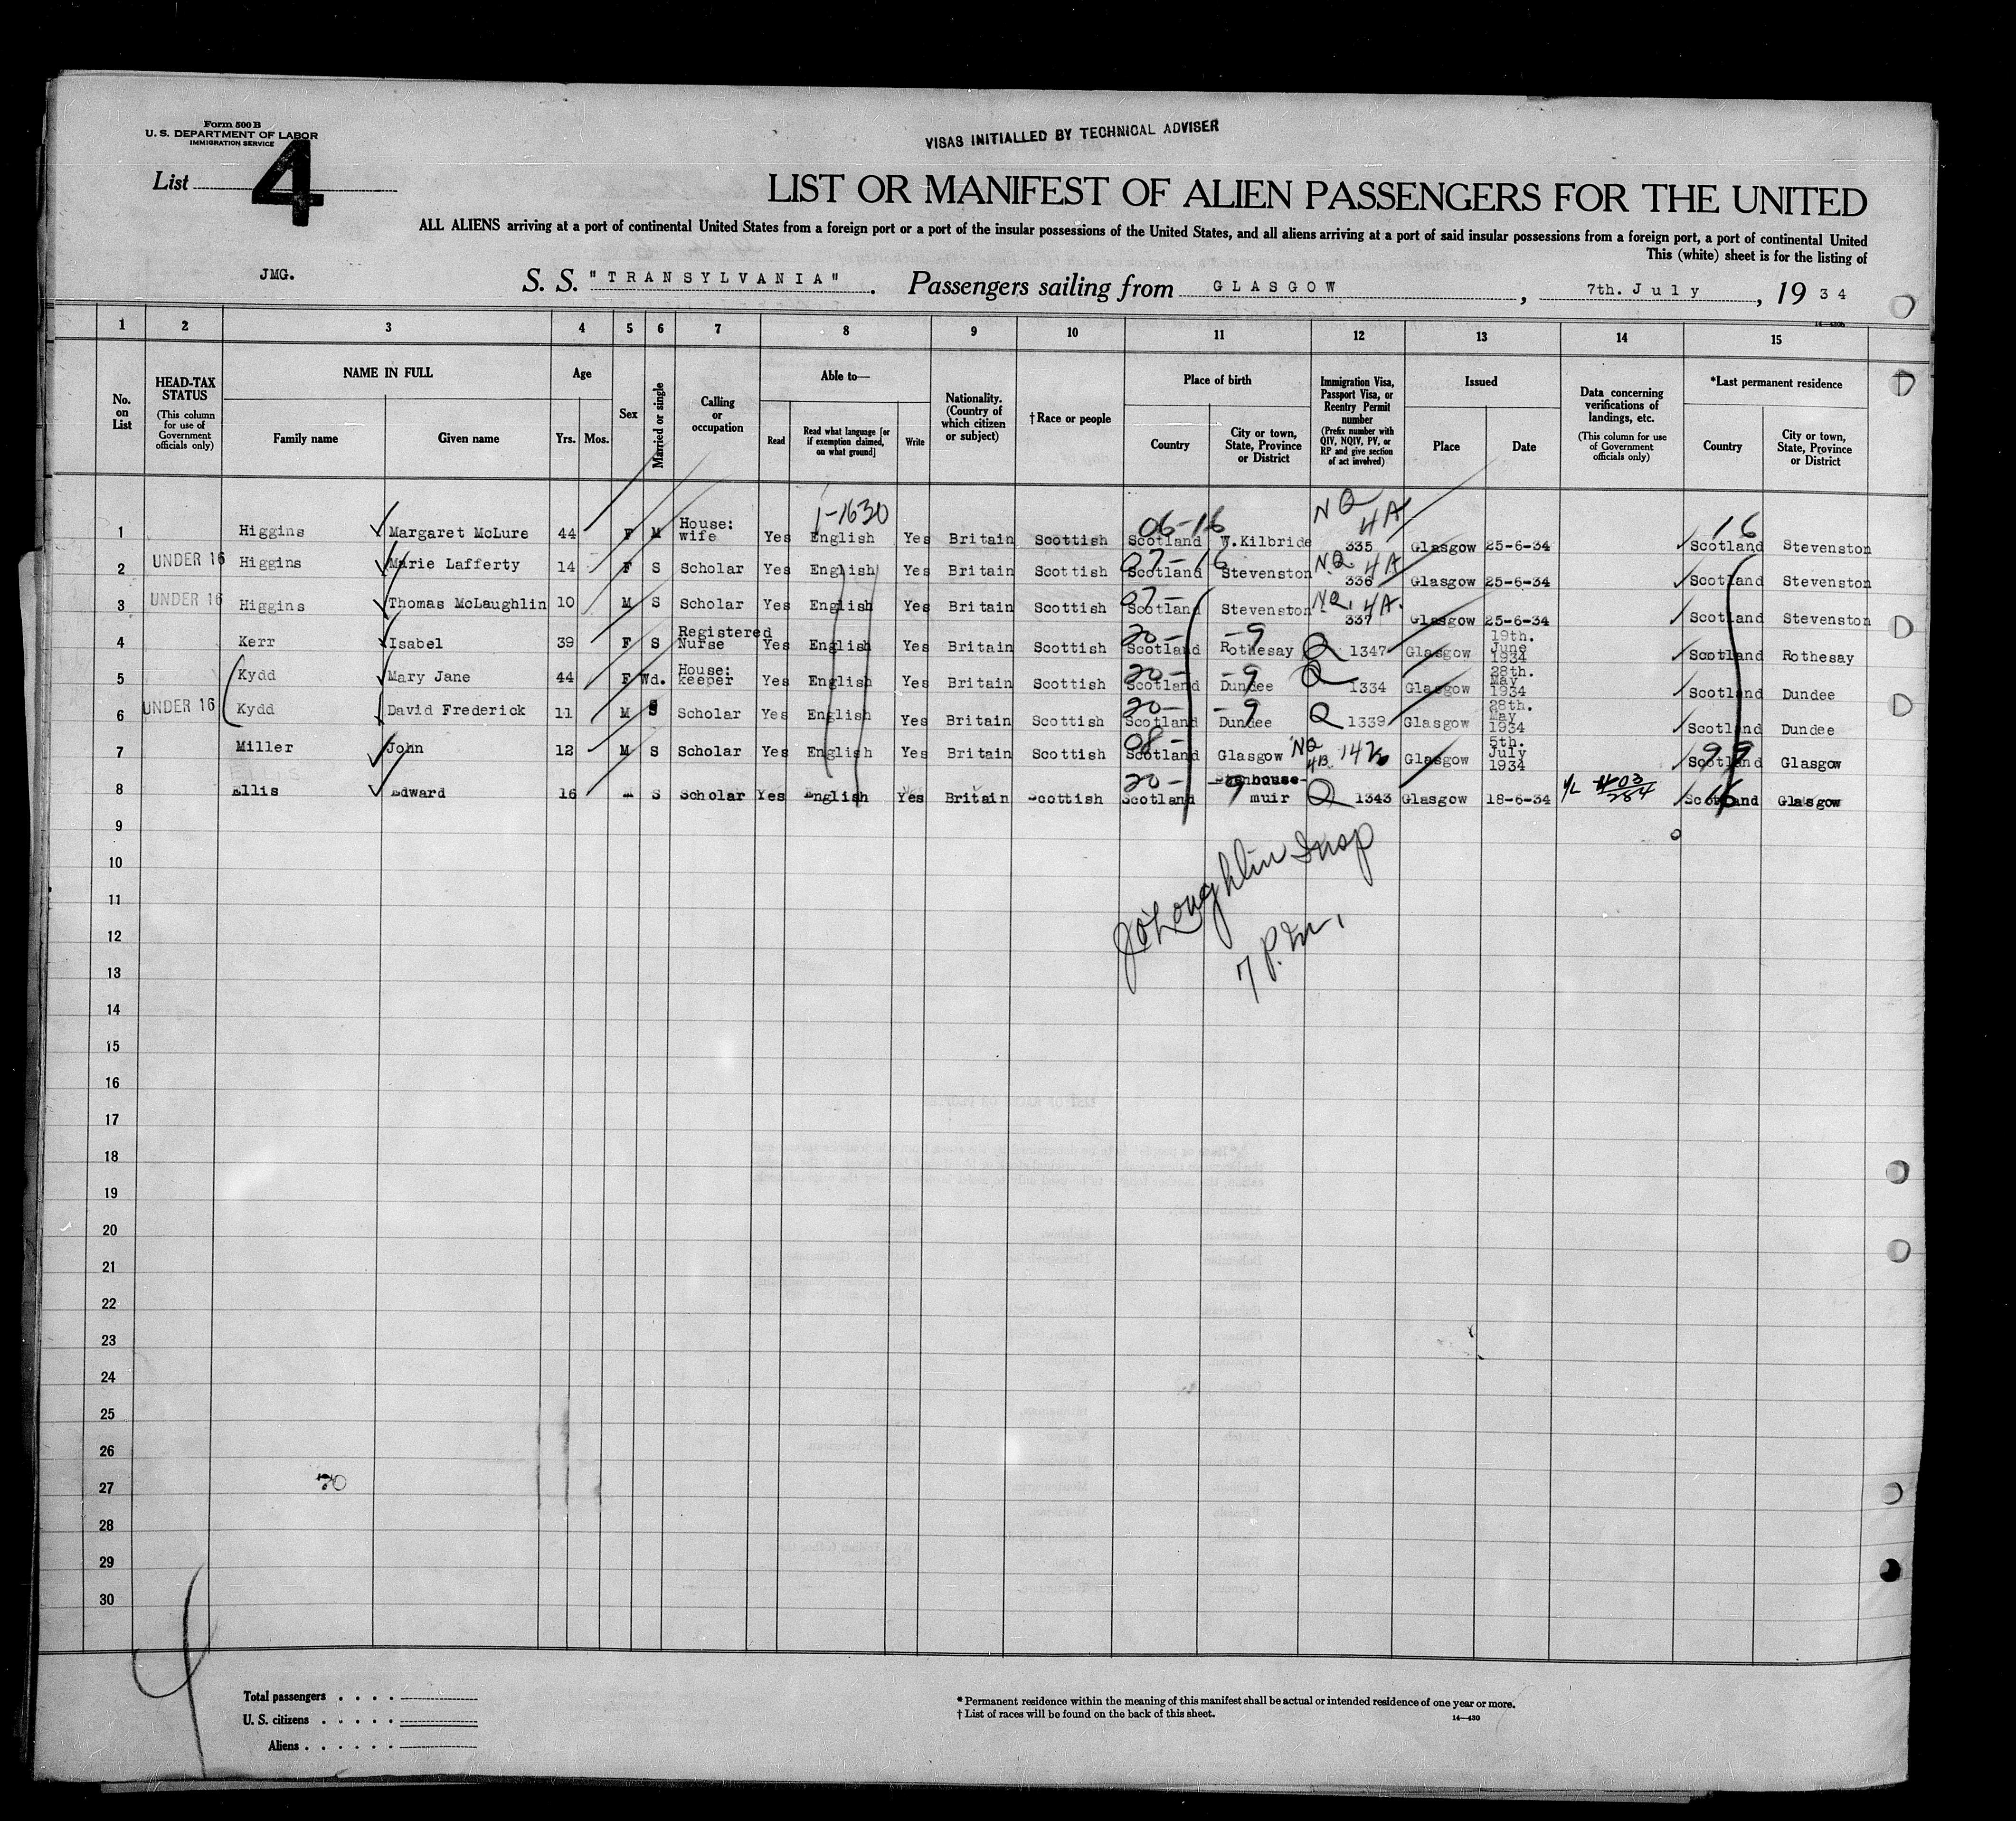 Form 500 B
U. S. DEPARTMENT OF LABOR
IMMIGRATION SERVICE
List 4
VISAS INITIALLED BY TECHNICAL ADVISER
LIST OR MANIFEST OF ALIEN PASSENGERS FOR THE UNITED
ALL ALIENS arriving at a port of continental United States from a foreign port or a port of the insular possessions of the United States, and all aliens arriving at a port of said insular possessions from a foreign port, a port of continental United
This (white) sheet is for the listing of
JMG.
S. S. "TRANSYLVANIA". Passengers sailing from GLASGOW, 7th. July, 19 34
14-430b
1 2 3 4 5 6 7 8 9 10 11 12 13 14 15
No. on List
HEAD-TAX STATUS
(This column for use of Government officials only)
NAME IN FULL
Family name
Given name
Age
Yrs. Mos.
Sex
Married or single
Calling or occupation
Able to—
Read
Read what language [or if exemption claimed, on what ground]
Write
Nationality. (Country of which citizen or subject)
†Race or people
Place of birth
Country
City or town, State, Province or District
Immigration Visa, Passport Visa, or Reentry Permit number
(Prefix number with QIV, NQIV, PV, or RP and give section of act involved)
Issued
Place
Date
Data concerning verifications of landings, etc.
(This column for use of Government officials only)
*Last permanent residence
Country
City or town, State, Province or District
1-1630 06-16 NQ 4A 16
1 Higgins Margaret McLure 44 F M House: wife Yes English Yes Britain Scottish Scotland W.Kilbride 335 Glasgow 25-6-34 Scotland Stevenston
07-16 NQ 4A
2 UNDER 16 Higgins Marie Lafferty 14 F S Scholar Yes English Yes Britain Scottish Scotland Stevenston 336 Glasgow 25-6-34 Scotland Stevenston
07- NQ. 4A.
3 UNDER 16 Higgins Thomas McLaughlin 10 M S Scholar Yes English Yes Britain Scottish Scotland Stevenston 337 Glasgow 25-6-34 Scotland Stevenston
20- -9
4 Kerr Isabel 39 F S Registered Nurse Yes English Yes Britain Scottish Scotland Rothesay Q 1347 Glasgow 19th. June 1934 Scotland Rothesay
20- -9
5 Kydd Mary Jane 44 F Wd. House: keeper Yes English Yes Britain Scottish Scotland Dundee Q 1334 Glasgow 28th. May 1934 Scotland Dundee
20- -9
6 UNDER 16 Kydd David Frederick 11 M S Scholar Yes English Yes Britain Scottish Scotland Dundee Q 1339 Glasgow 28th. May 1934 Scotland Dundee
08- 99
7 Miller John 12 M S Scholar Yes English Yes Britain Scottish Scotland Glasgow NQ 4B Glasgow 5th. July 1934 Scotland Glasgow
ELLIS
20- 9 16
8 Ellis Edward 16 S Scholar Yes English Yes Britain Scottish Scotland Stenhouse-muir Q 1343 Glasgow 18-6-34 Scotland Glasgow
9
10
11
JO'Loughlin Insp
12
7 P.M.
13
14
15
16
17
18
19
20
21
22
23
24
25
26
27 70
28
29
30
Total passengers
U. S. citizens
Aliens
* Permanent residence within the meaning of this manifest shall be actual or intended residence of one year or more.
† List of races will be found on the back of this sheet.
14—430